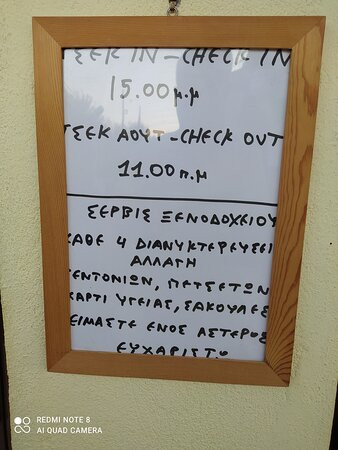 ΤΣΕΚ ΙΝ - CHECK IN
15.00 μ.μ
ΤΣΕΚ ΑΟΥΤ - CHECK OUT
11.00 π.μ
ΣΕΡΒΙΣ ΞΕΝΟΔΟΧΕΙΟΥ
ΚΑΘΕ 4 ΔΙΑΝΥΚΤΕΡΕΥΣΕΙ
ΑΛΛΑΓΗ
ΣΕΝΤΟΝΙΩΝ, ΠΕΤΣΕΤΩΝ
ΧΑΡΤΙ ΥΓΕΙΑΣ, ΣΑΚΟΥΛΕΣ
ΕΙΜΑΣΤΕ ΕΝΟΣ ΑΣΤΕΡΟΣ
ΕΥΧΑΡΙΣΤΩ
REDMI NOTE 8
AI QUAD CAMERA